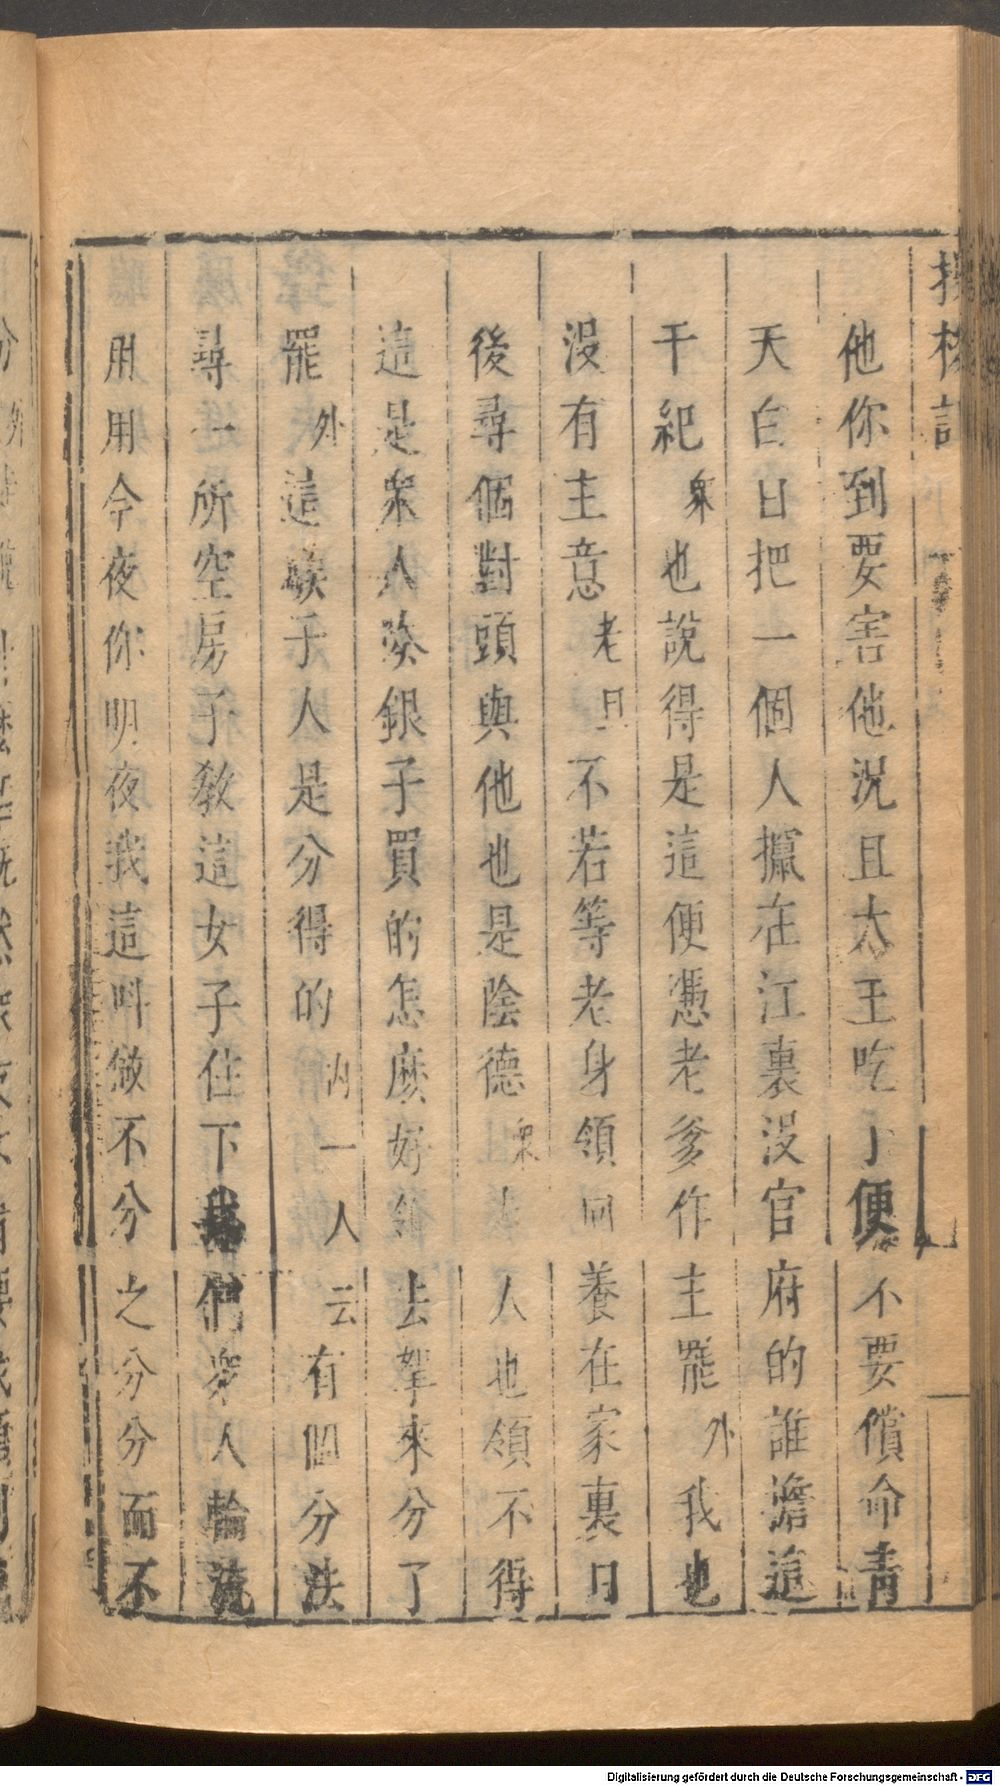 他你到要害他況且大王吃了便不要償命青
天白日把一個人攛在江裏沒官府的誰擔這
干紀衆也說得是這便憑老爹作主罷外我也
沒有主意老旦不若等老身領回養在家裏日
後尋個對頭與他也是陰德衆夫人也領不得
這是衆人湊銀子買的怎麽好領去拏來分了
罷外這嵈子人是分得的内一人云有個分法
尋一所空房子教這女子住下我們衆人輪流
用用今夜你明夜我這呌做不分之分分而不
Digitalisierung gefördert durch die Deutsche Forschungsgemeinschaft - DFG